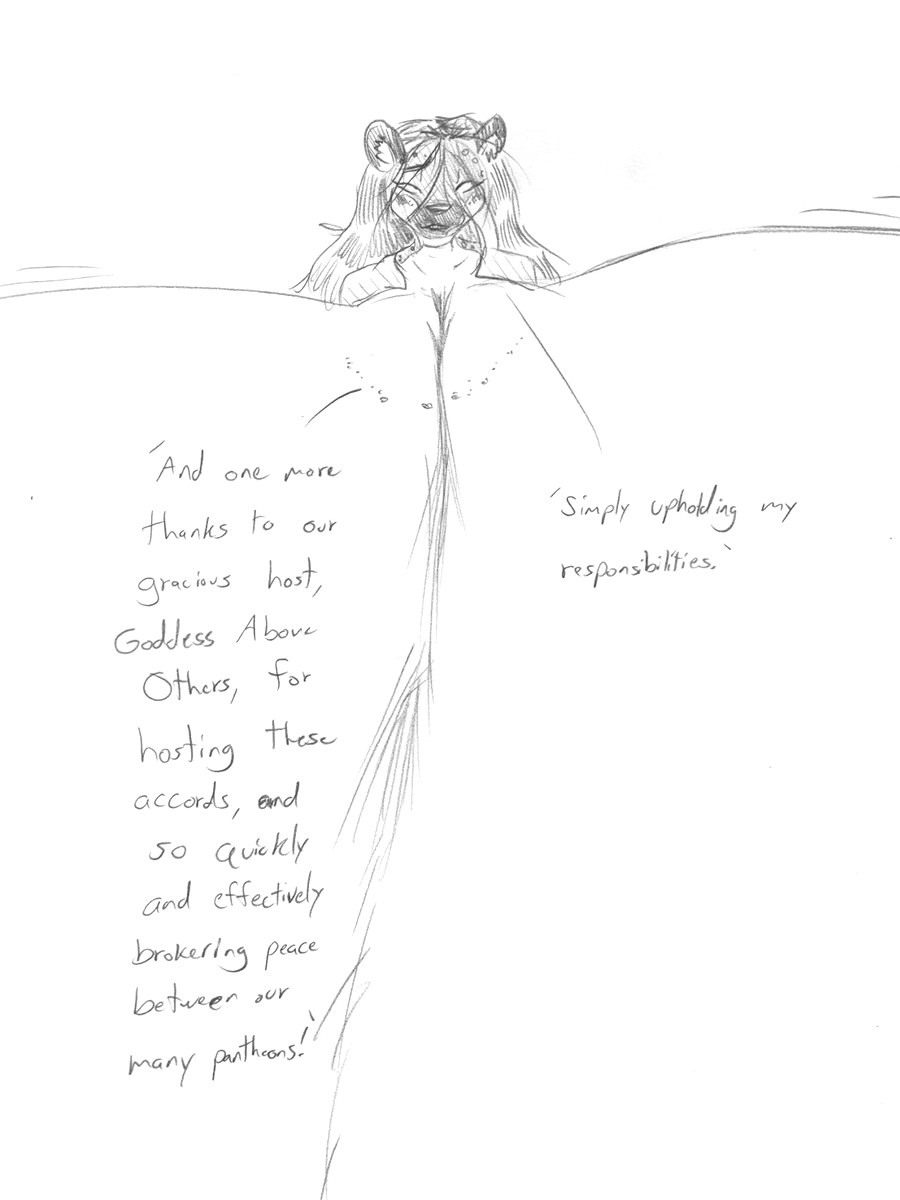 'And one more
thanks to our
gracious host,
Goddess Above
Others, for
hosting these
accords, and
so quickly
and effectively
brokering peace
between our
many pantheons!'
'Simply upholding my
responsibilities.'